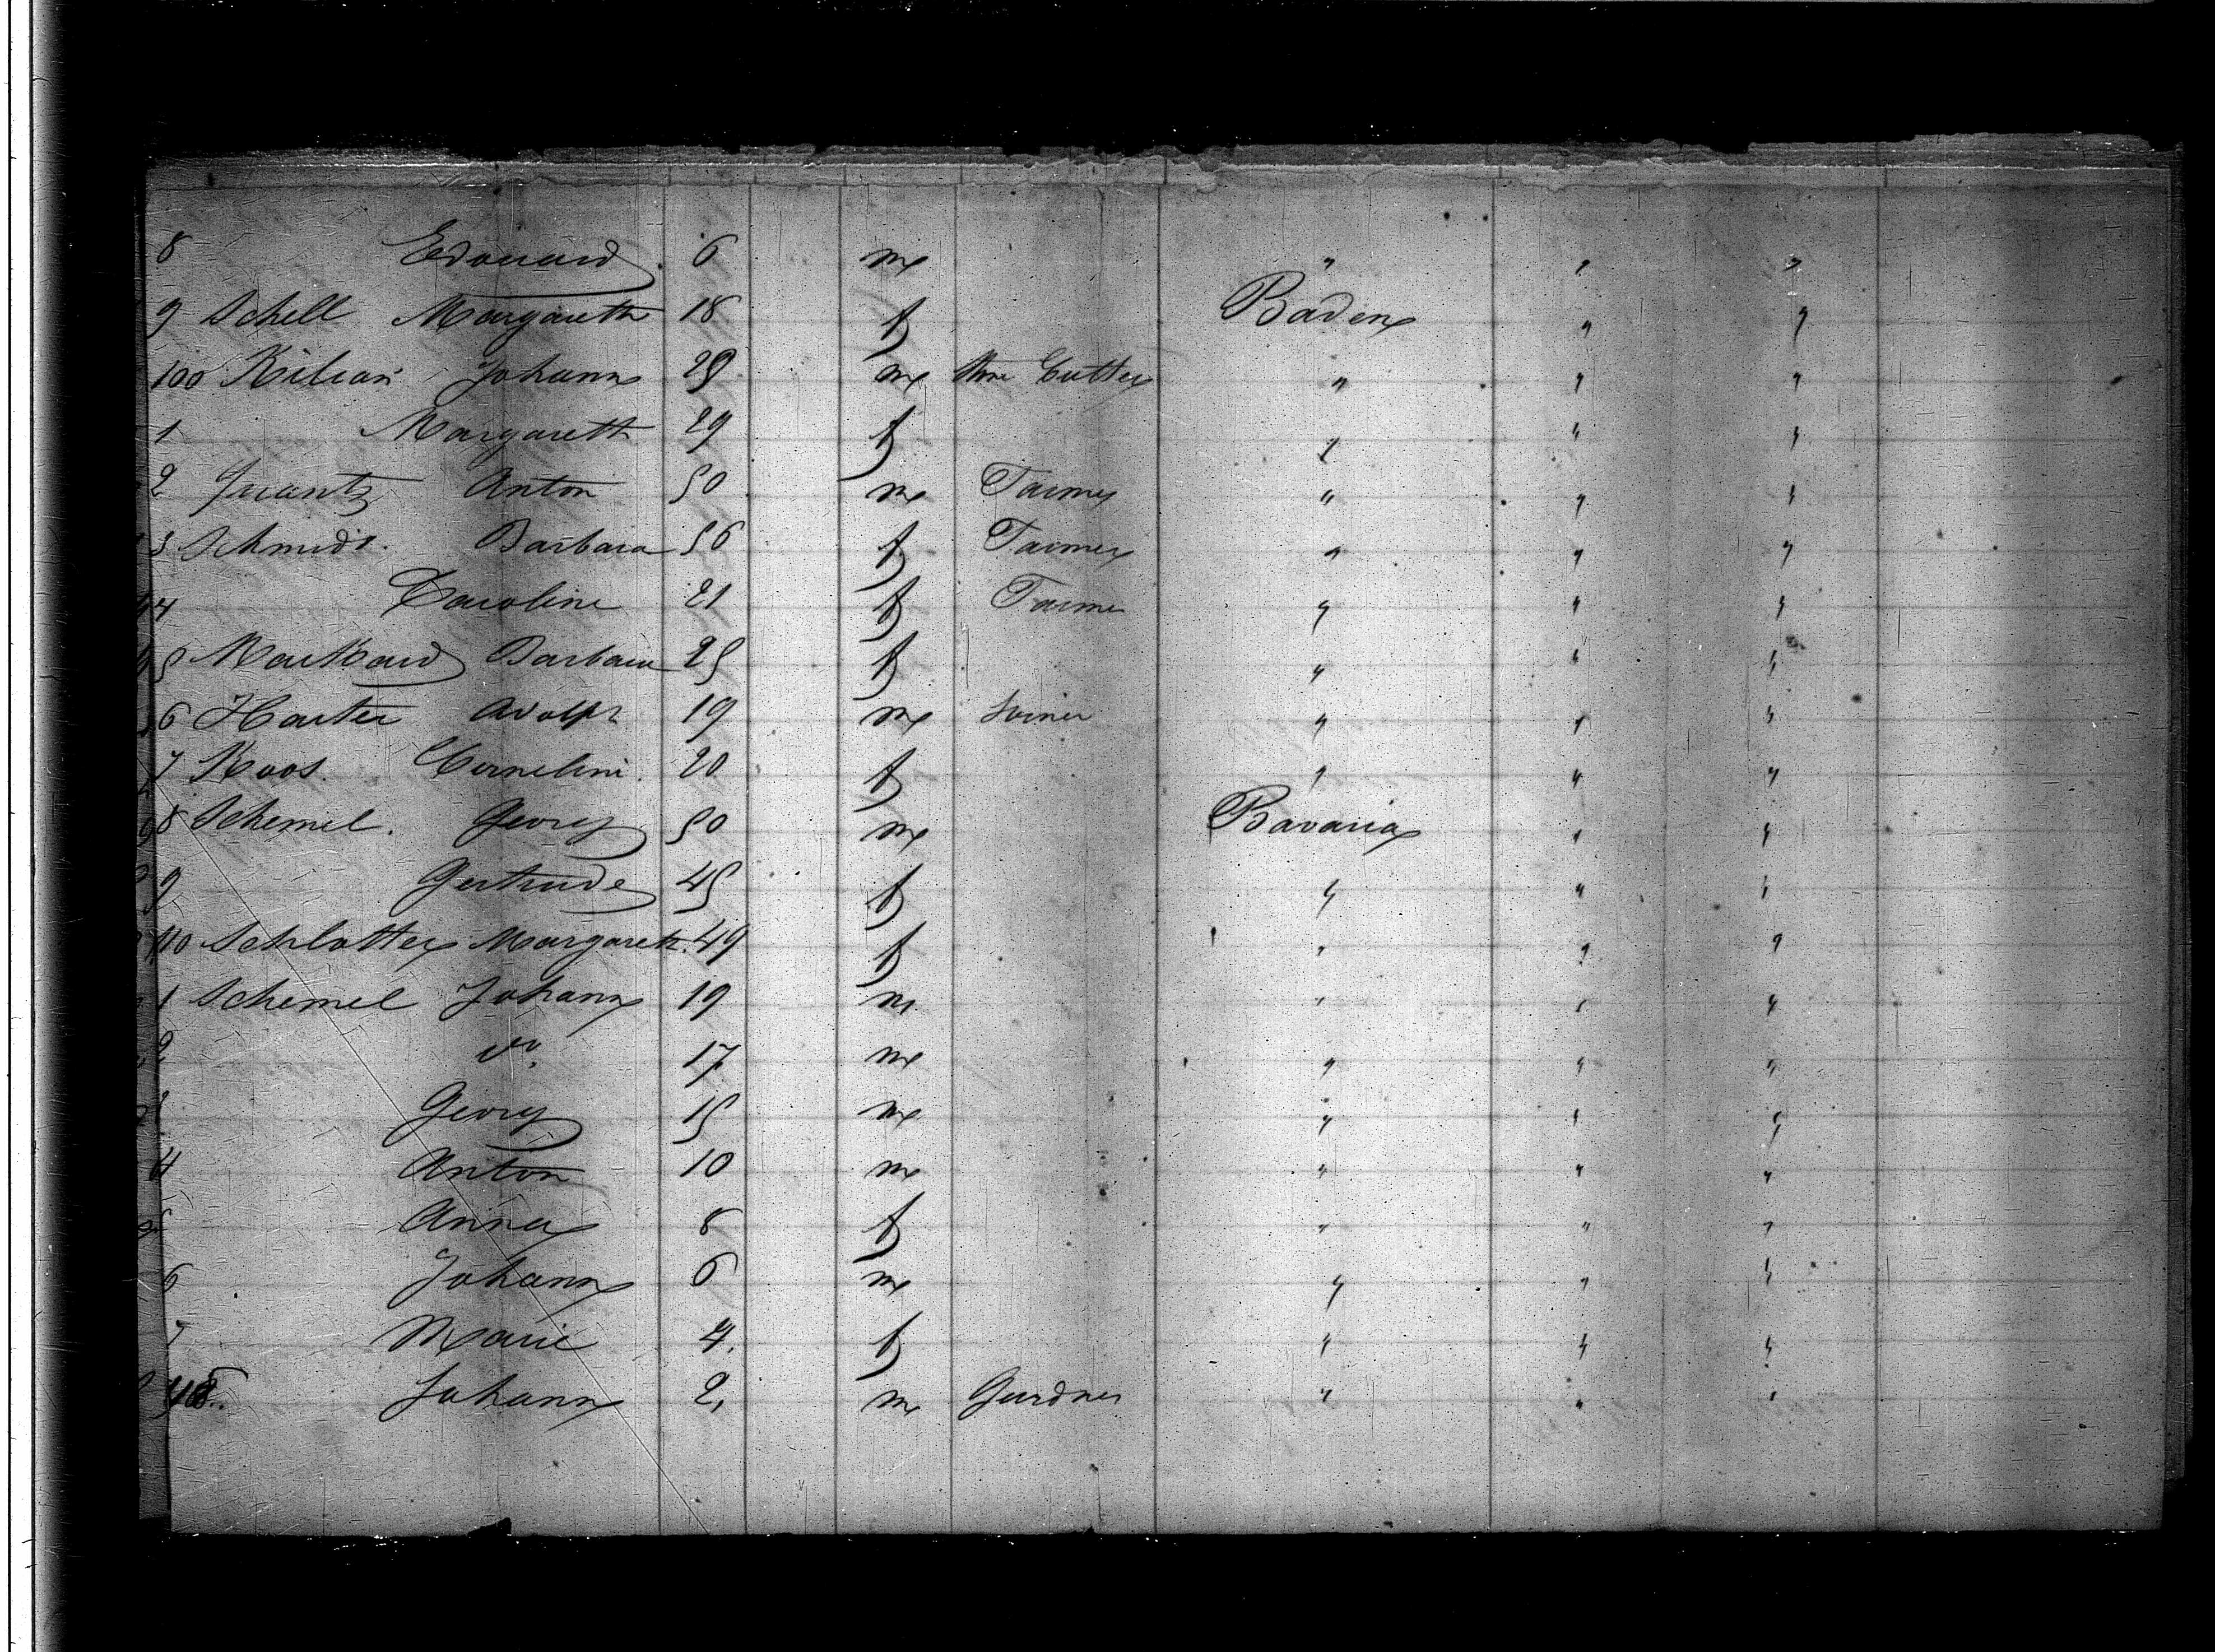 8 Edouard 6 m " " "
9 Schell Margareth 18 f Baden " "
100 Kilian Johann 29 m Stone Cutter " " "
1 Margareth 29 f " " "
2 Anton 50 m Farmer " " "
3 Schmidt. Barbara 56 f Farmer " " "
4 Caroline 21 f Farmer " " "
5 Barbara 25 f " " "
6 Harter Adolph 19 m Joiner " " "
7 Koos. 20 f " " "
8 Schemel. Georg 50 m Bavaria " "
9 Gertrude 45 f " " "
110 Schlotter Margareth. 49 f " " "
1 Schemel Johann 19 m " " "
2 do 17 m " " "
Georg 15 m " " "
4 Anton 10 m " " "
5 Anna 8 f " " "
6 Johann 6 m " " "
7 Marie 4. f " " "
Johann 2, m Gardner " " "